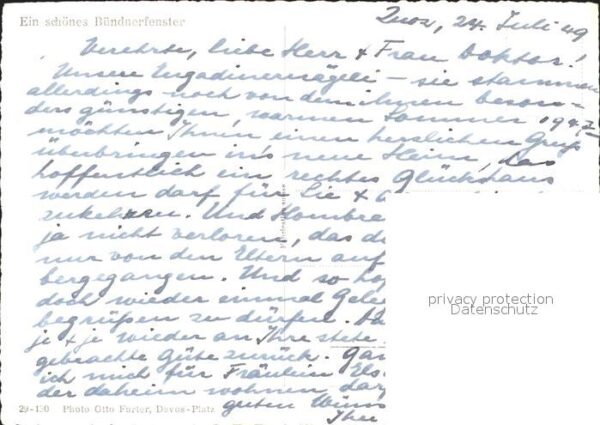 Ein schönes Bündnerfenster
Zuoz, 24. Juli 49
Verehrte, liebe Herr & Frau Doktor!
Unsere Engadinernägeli – sie stammen
allerdings noch von dem ihnen beson-
ders günstigen, warmen Sommer 1947 –
möchten Ihnen einen herzlichen Gruß
überbringen in's neue Heim, das
hoffentlich ein rechtes Glückshaus
werden darf für Sie &
zukehren. Und
ja nicht verloren, das
nur von den Eltern auf
bergegangen. Und so
doch wieder einmal
begrüßen zu dürfen.
je & je wieder an Ihre stete
gebrachte Güte zurück.
ich mich für Fräulein
der daheim wohnen
guten
Ihre
privacy protection
Datenschutz
29-130 Photo Otto Furter, Davos-Platz